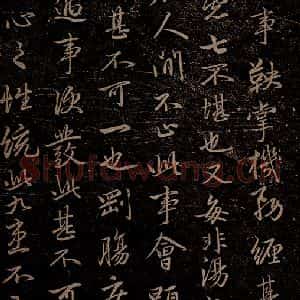 事鞅掌機務纏其
慮七不堪也又每非湯
人間不止此事會顯
甚不可一也剛腸疾
遇事便發此甚不可
心之性統此九患不
Shufawang.CN